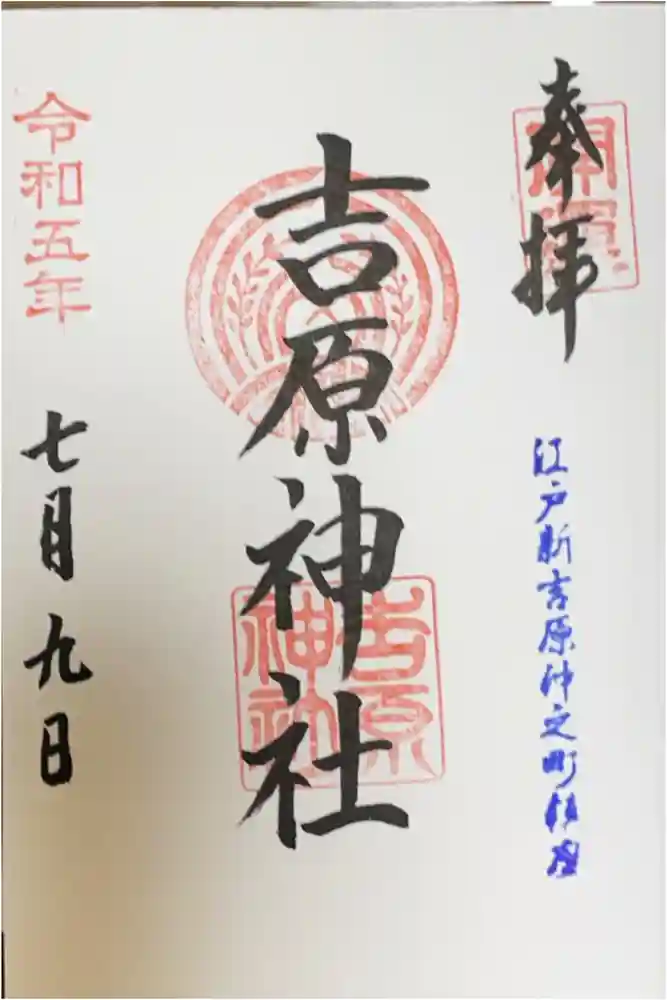 奉拝
開運
江戸新吉原仲之町松屋
吉原神社
吉原神社
令和五年
七月九日